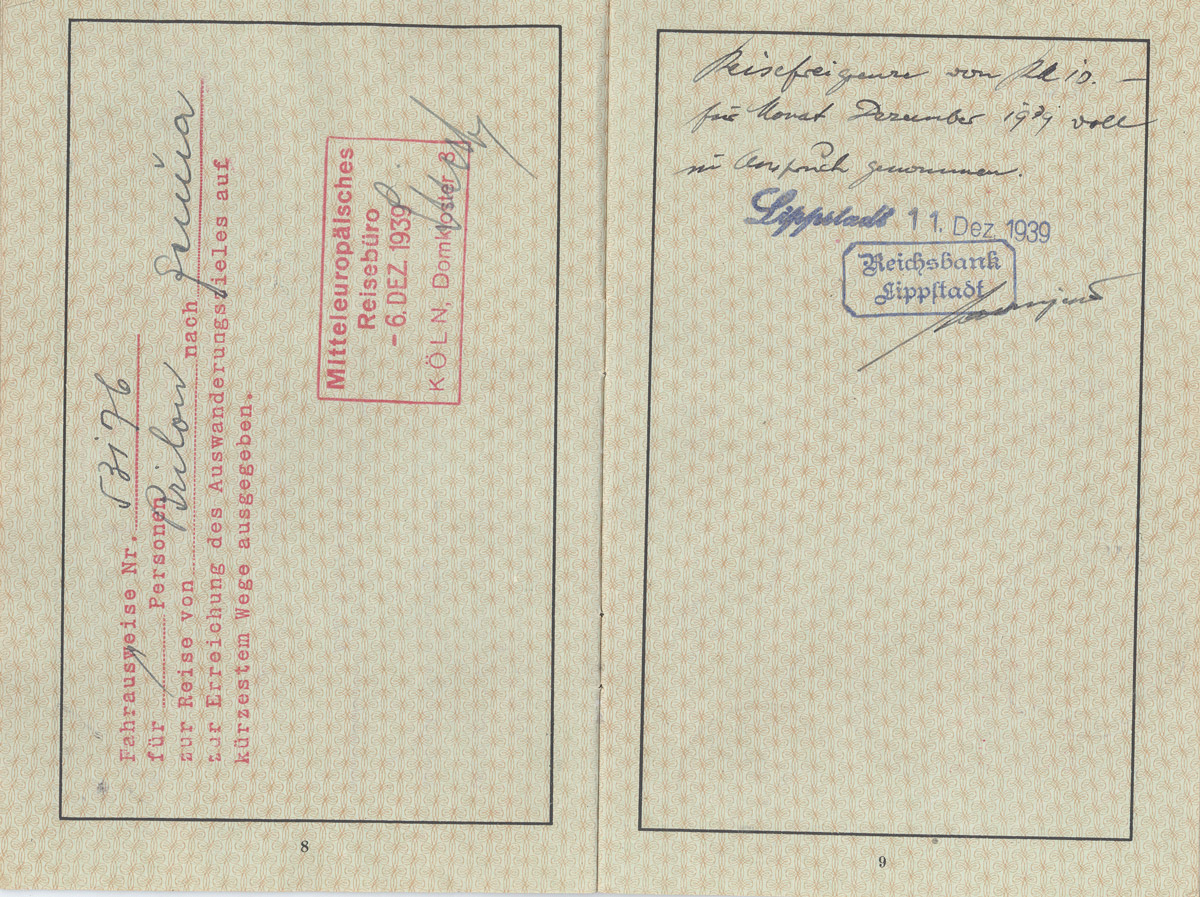 Fahrausweise Nr. 53176
für 1 Personen
zur Reise von Brilon nach Genua
zur Erreichung des Auswanderungszieles auf
kürzestem Wege ausgegeben.
Mitteleuropäisches
Reisebüro
- 6. DEZ. 1939
KÖLN, Domkloster 3
8
Reisefreigrenze von RM 10. —
für Monat Dezember 1939 voll
in Anspruch genommen.
Lippstadt 11. Dez. 1939
Reichsbank
Lippstadt
9